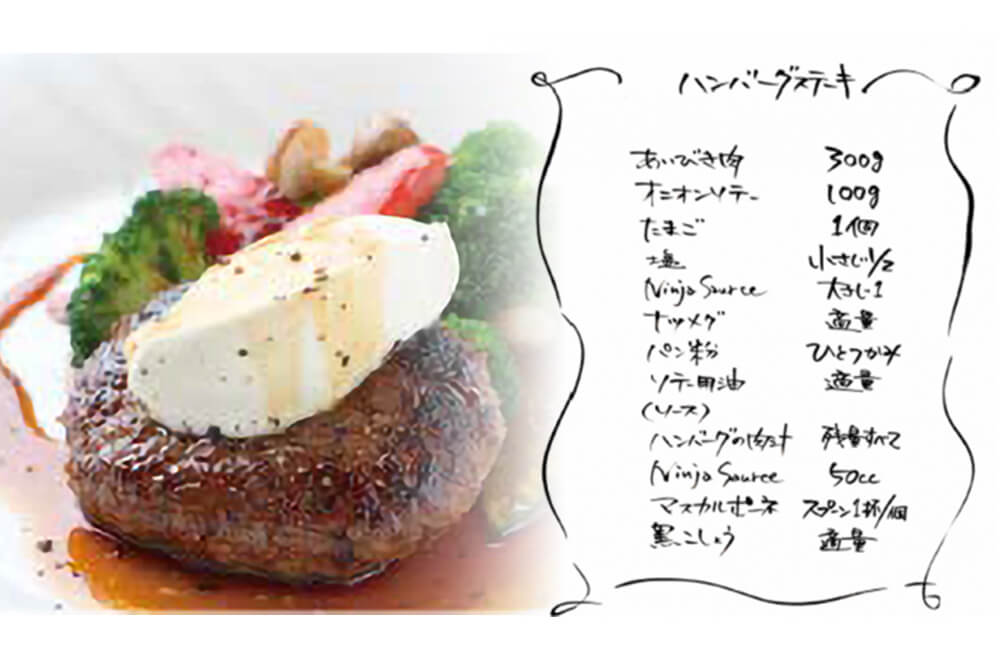 ハンバーグステーキ
あいびき肉 300g
オニオンソテー 100g
たまご 1個
塩 小さじ1/2
Ninja Source 大さじ1
ナツメグ 適量
パン粉 ひとつかみ
ソテー用油 適量
(ソース)
ハンバーグの肉汁 残量すべて
Ninja Source 50cc
マスカルポーネ スプーン1杯/個
黒こしょう 適量